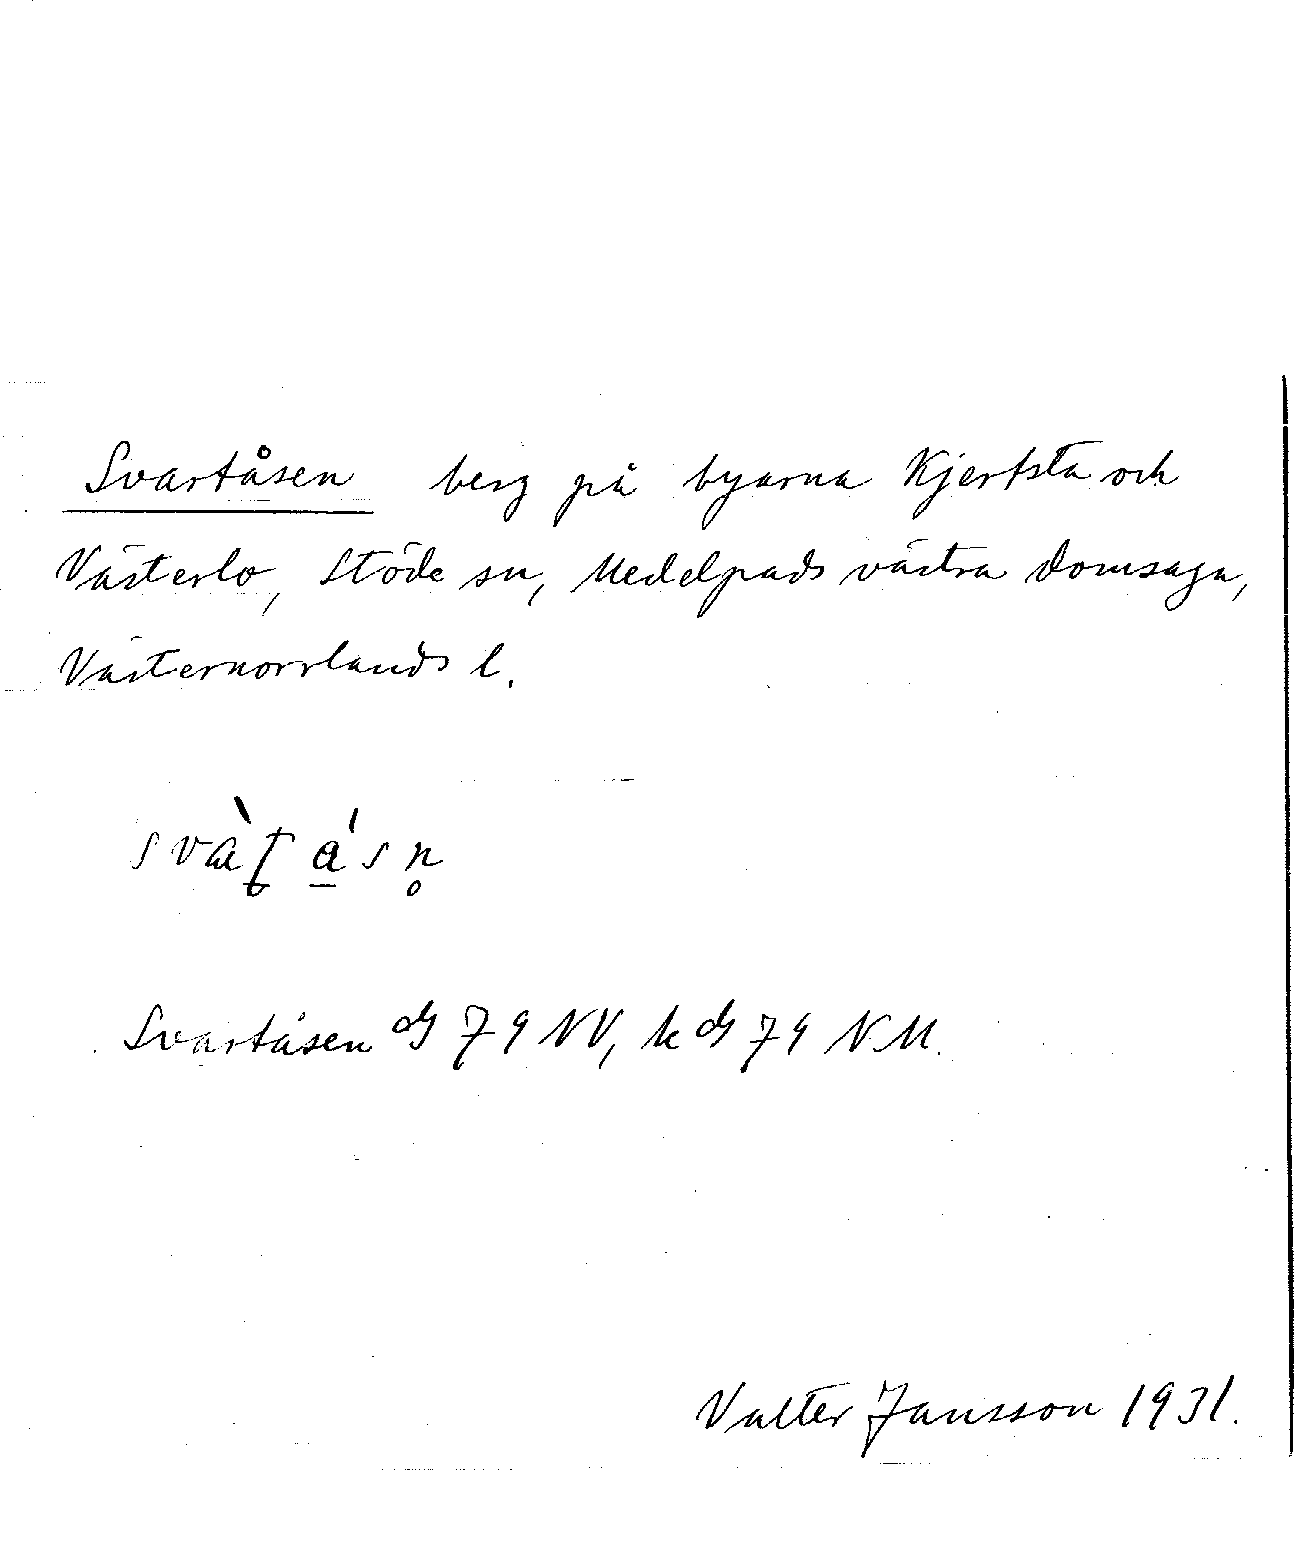 Svartåsen berg på byarna Kjertsta och
Västerlo, Stöde sn, Medelpads västra domsaga,
Västernorrlands l.
svàʈá̲sn̥
Svartåsen dg 79 NV, k dg 79 NM.
Valter Jansson 1931.